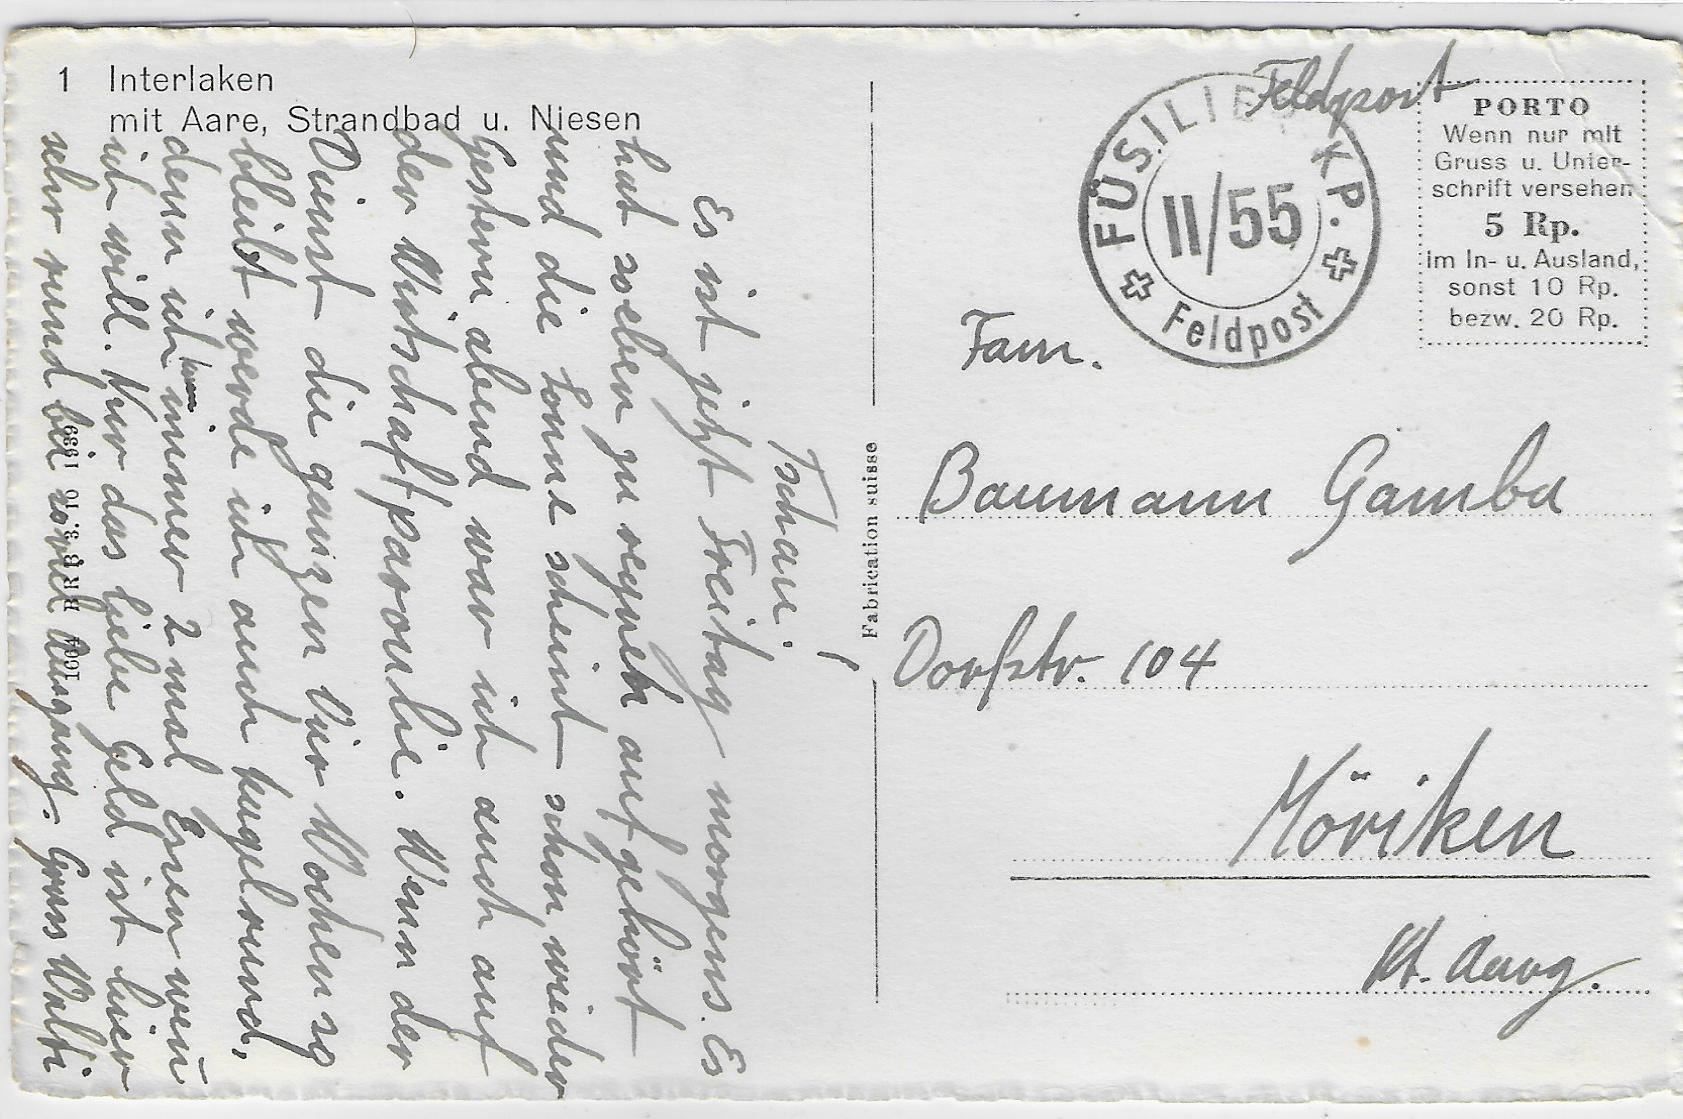 1 Interlaken
mit Aare, Strandbad u. Niesen
Tschau!
Es ist jetzt Freitag morgens. Es
hat soeben zu regnen aufgehört
und die Sonne scheint schon wieder
Gestern abend war ich auch auf
der Wirtschaftparoulie. Wenn der
Dienst die ganzen vier Wochen so
bleibt werde ich auch kugelrund,
denn ich kann immer 2 mal Essen wenn
ich will. Nur das liebe Geld ist hier
sehr rund bei soviel Ausgang. Gruss Walti
1004 H R 8.3.10 1939
Fabrication suisse
Feldpost
FÜSILIER KP.
II/55
Feldpost
PORTO
Wenn nur mit
Gruss u. Unter-
schrift versehen
5 Rp.
im In- u. Ausland,
sonst 10 Rp.
bezw. 20 Rp.
Fam.
Baumann Gamba
Dorfstr. 104
Möriken
Kt. Aarg.